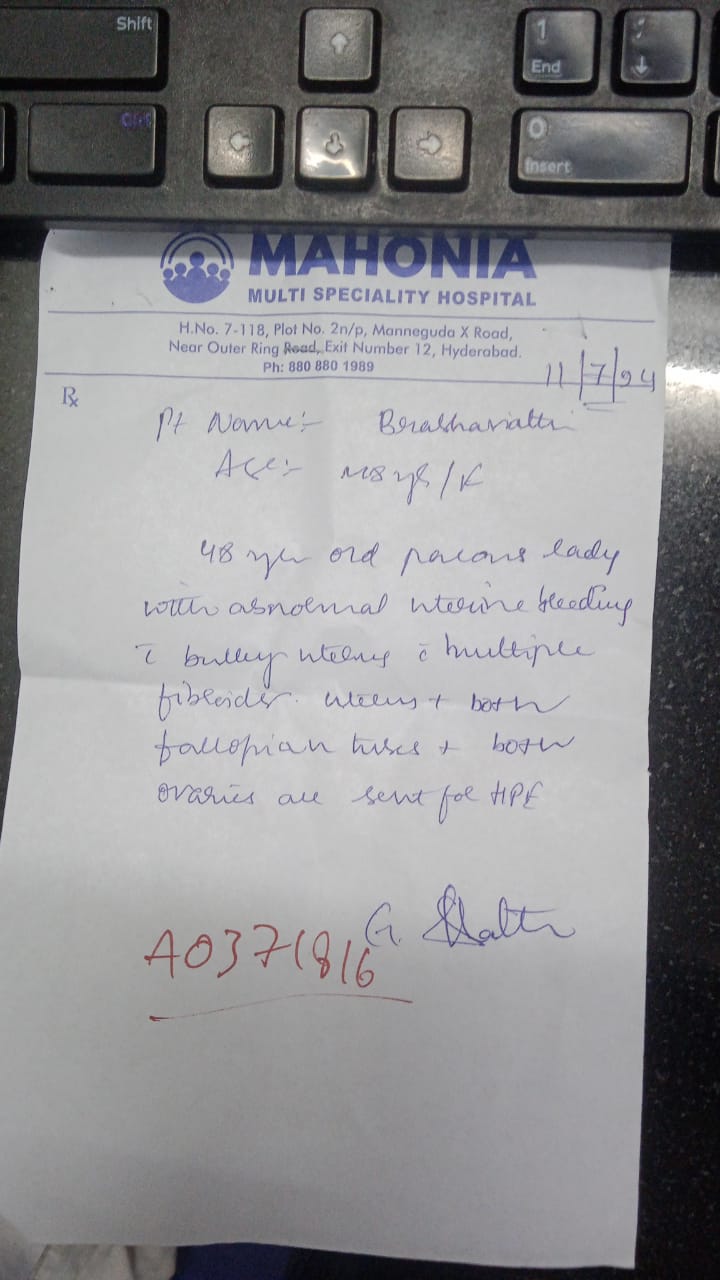 Shift
↑
1
End
↓
Ctrl
←
↓
→
0
Insert
MAHONIA
MULTI SPECIALITY HOSPITAL
H.No. 7-118, Plot No. 2n/p, Manneguda X Road,
Near Outer Ring Road, Exit Number 12, Hyderabad.
Ph: 880 880 1989
11/7/24
℞
Pt Name:-
Age:- 48 yrs/F
48 year old parous lady
with abnormal uterine bleeding
c̄ bulky uterus c̄ multiple
fibroids. uterus + both
fallopian tubes + both
ovaries are sent for HPE
G.
A0371816